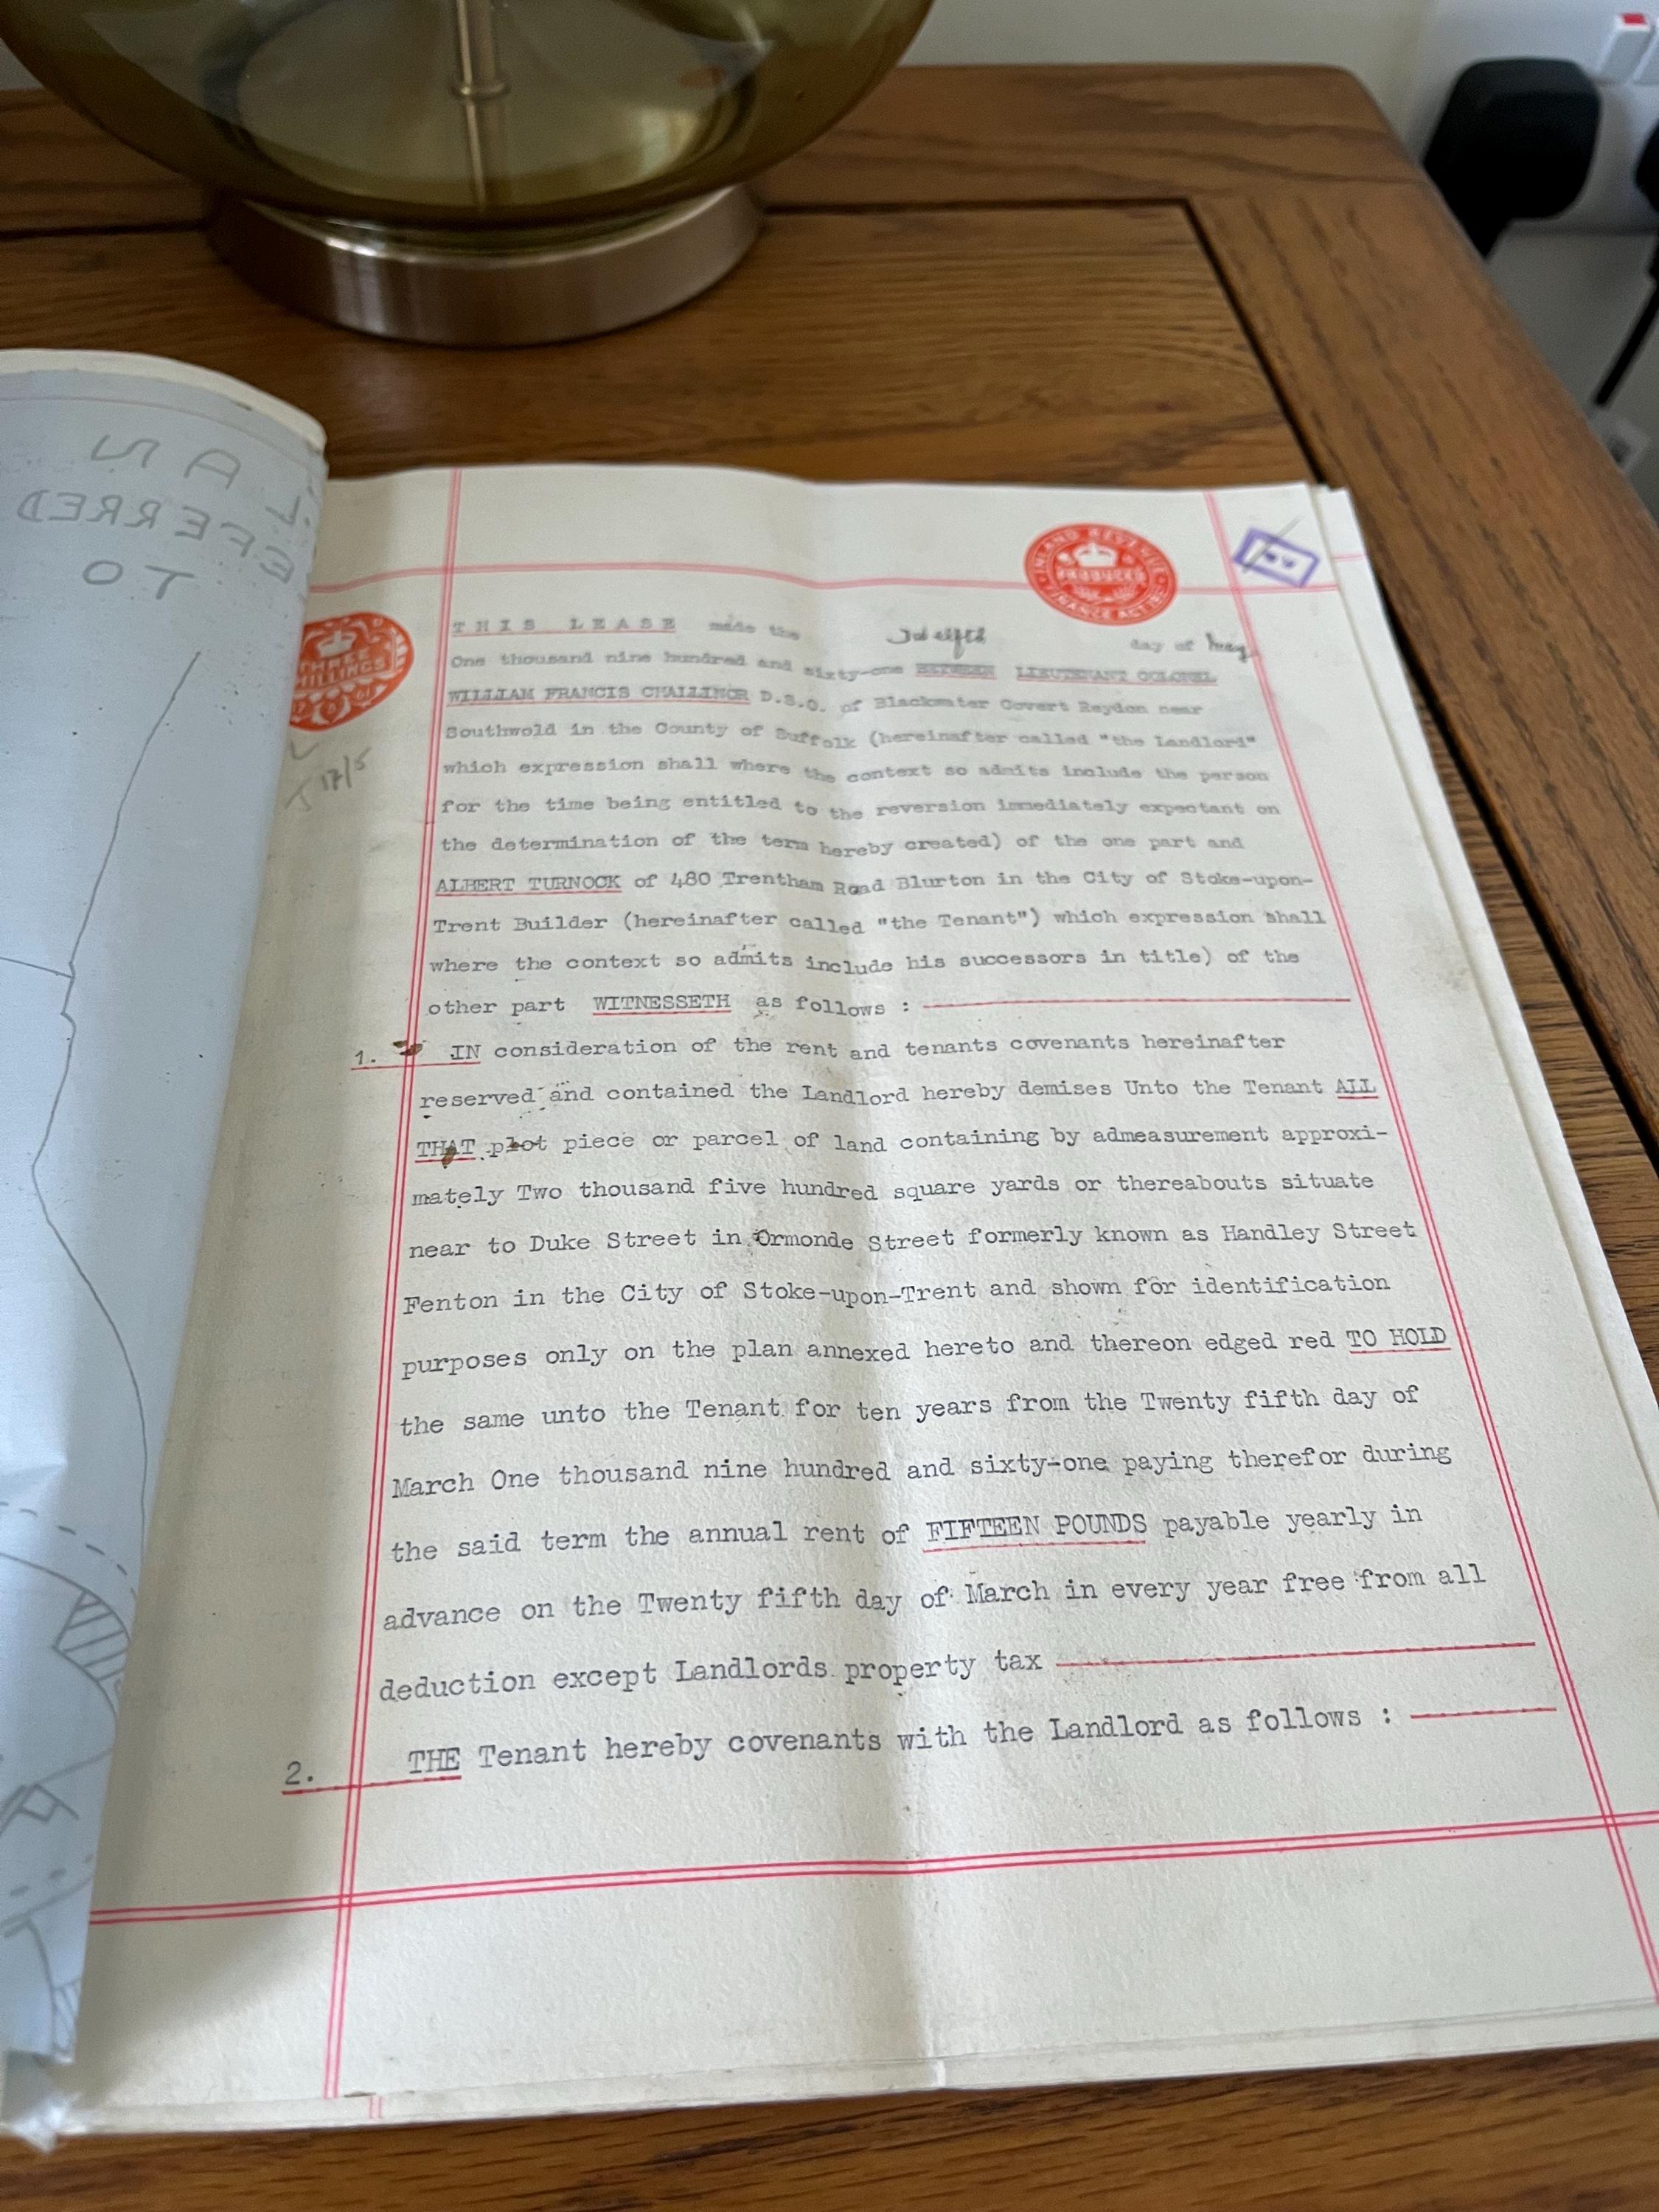 THIS LEASE made the Twelfth day of May
One thousand nine hundred and sixty-one BETWEEN LIEUTENANT COLONEL
WILLIAM FRANCIS CHALLINOR D.S.O. of Blackwater Covert Reydon near
Southwold in the County of Suffolk (hereinafter called "the Landlord"
which expression shall where the context so admits include the person
for the time being entitled to the reversion immediately expectant on
the determination of the term hereby created) of the one part and
ALBERT TURNOCK of 480 Trentham Road Blurton in the City of Stoke-upon-
Trent Builder (hereinafter called "the Tenant") which expression shall
where the context so admits include his successors in title) of the
other part WITNESSETH as follows :
1. IN consideration of the rent and tenants covenants hereinafter
reserved and contained the Landlord hereby demises Unto the Tenant ALL
THAT plot piece or parcel of land containing by admeasurement approxi-
mately Two thousand five hundred square yards or thereabouts situate
near to Duke Street in Ormonde Street formerly known as Handley Street
Fenton in the City of Stoke-upon-Trent and shown for identification
purposes only on the plan annexed hereto and thereon edged red TO HOLD
the same unto the Tenant for ten years from the Twenty fifth day of
March One thousand nine hundred and sixty-one paying therefor during
the said term the annual rent of FIFTEEN POUNDS payable yearly in
advance on the Twenty fifth day of March in every year free from all
deduction except Landlords property tax
2. THE Tenant hereby covenants with the Landlord as follows :
INLAND REVENUE
PRODUCED
FINANCE ACT
THREE
SHILLINGS
17/5
TO